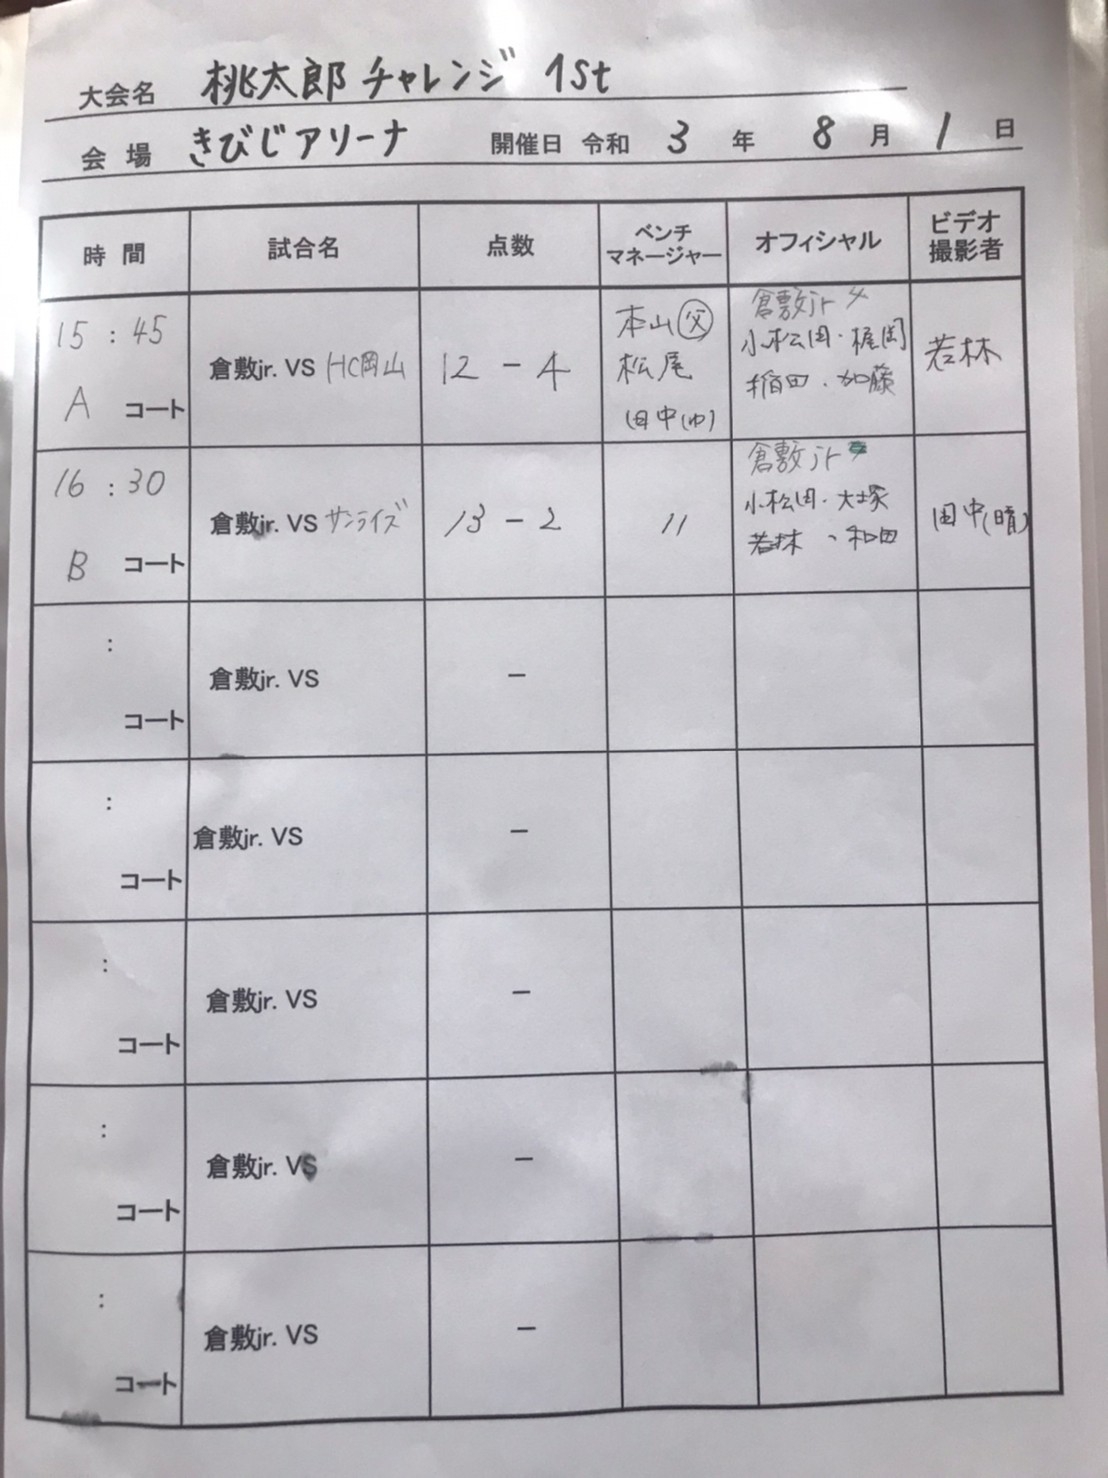 大会名 桃太郎チャレンジ 1St
会場 きびじアリーナ 開催日 令和 3 年 8 月 1 日
時間 試合名 点数 ベンチマネージャー オフィシャル ビデオ撮影者
15:45
A コート
倉敷jr. VS HC岡山
12 - 4
本山(父)
松尾
田中(ゆ)
倉敷jr
小松園・梶岡
稲田・加藤
若林
16:30
B コート
倉敷jr. VS サンライズ
13 - 2
〃
倉敷jr
小松園・大塚
若林、和田
田中(晴)
:
コート
倉敷jr. VS
-
:
コート
倉敷jr. VS
-
:
コート
倉敷jr. VS
-
:
コート
倉敷jr. VS
-
:
コート
倉敷jr. VS
-